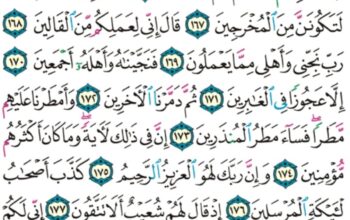 لَتَكُونَنَّ مِنَ ٱلْمُخْرَجِينَ ١٦٧ قَالَ إِنِّي لِعَمَلِكُم مِّنَ ٱلْقَالِينَ ١٦٨
رَبِّ نَجِّنِي وَأَهْلِي مِمَّا يَعْمَلُونَ ١٦٩ فَنَجَّيْنَٰهُ وَأَهْلَهُۥٓ أَجْمَعِينَ ١٧٠
إِلَّا عَجُوزًا فِي ٱلْغَٰبِرِينَ ١٧١ ثُمَّ دَمَّرْنَا ٱلْءَاخَرِينَ ١٧٢ وَأَمْطَرْنَا عَلَيْهِم
مَّطَرًا ۖ فَسَآءَ مَطَرُ ٱلْمُنذَرِينَ ١٧٣ إِنَّ فِي ذَٰلِكَ لَءَايَةً ۖ وَمَا كَانَ أَكْثَرُهُم
مُّؤْمِنِينَ ١٧٤ وَإِنَّ رَبَّكَ لَهُوَ ٱلْعَزِيزُ ٱلرَّحِيمُ ١٧٥ كَذَّبَ أَصْحَٰبُ
لْـَٔيْكَةِ ٱلْمُرْسَلِينَ ١٧٦ إِذْ قَالَ لَهُمْ شُعَيْبٌ أَلَا تَتَّقُونَ ١٧٧ إِنِّي لَكُمْ